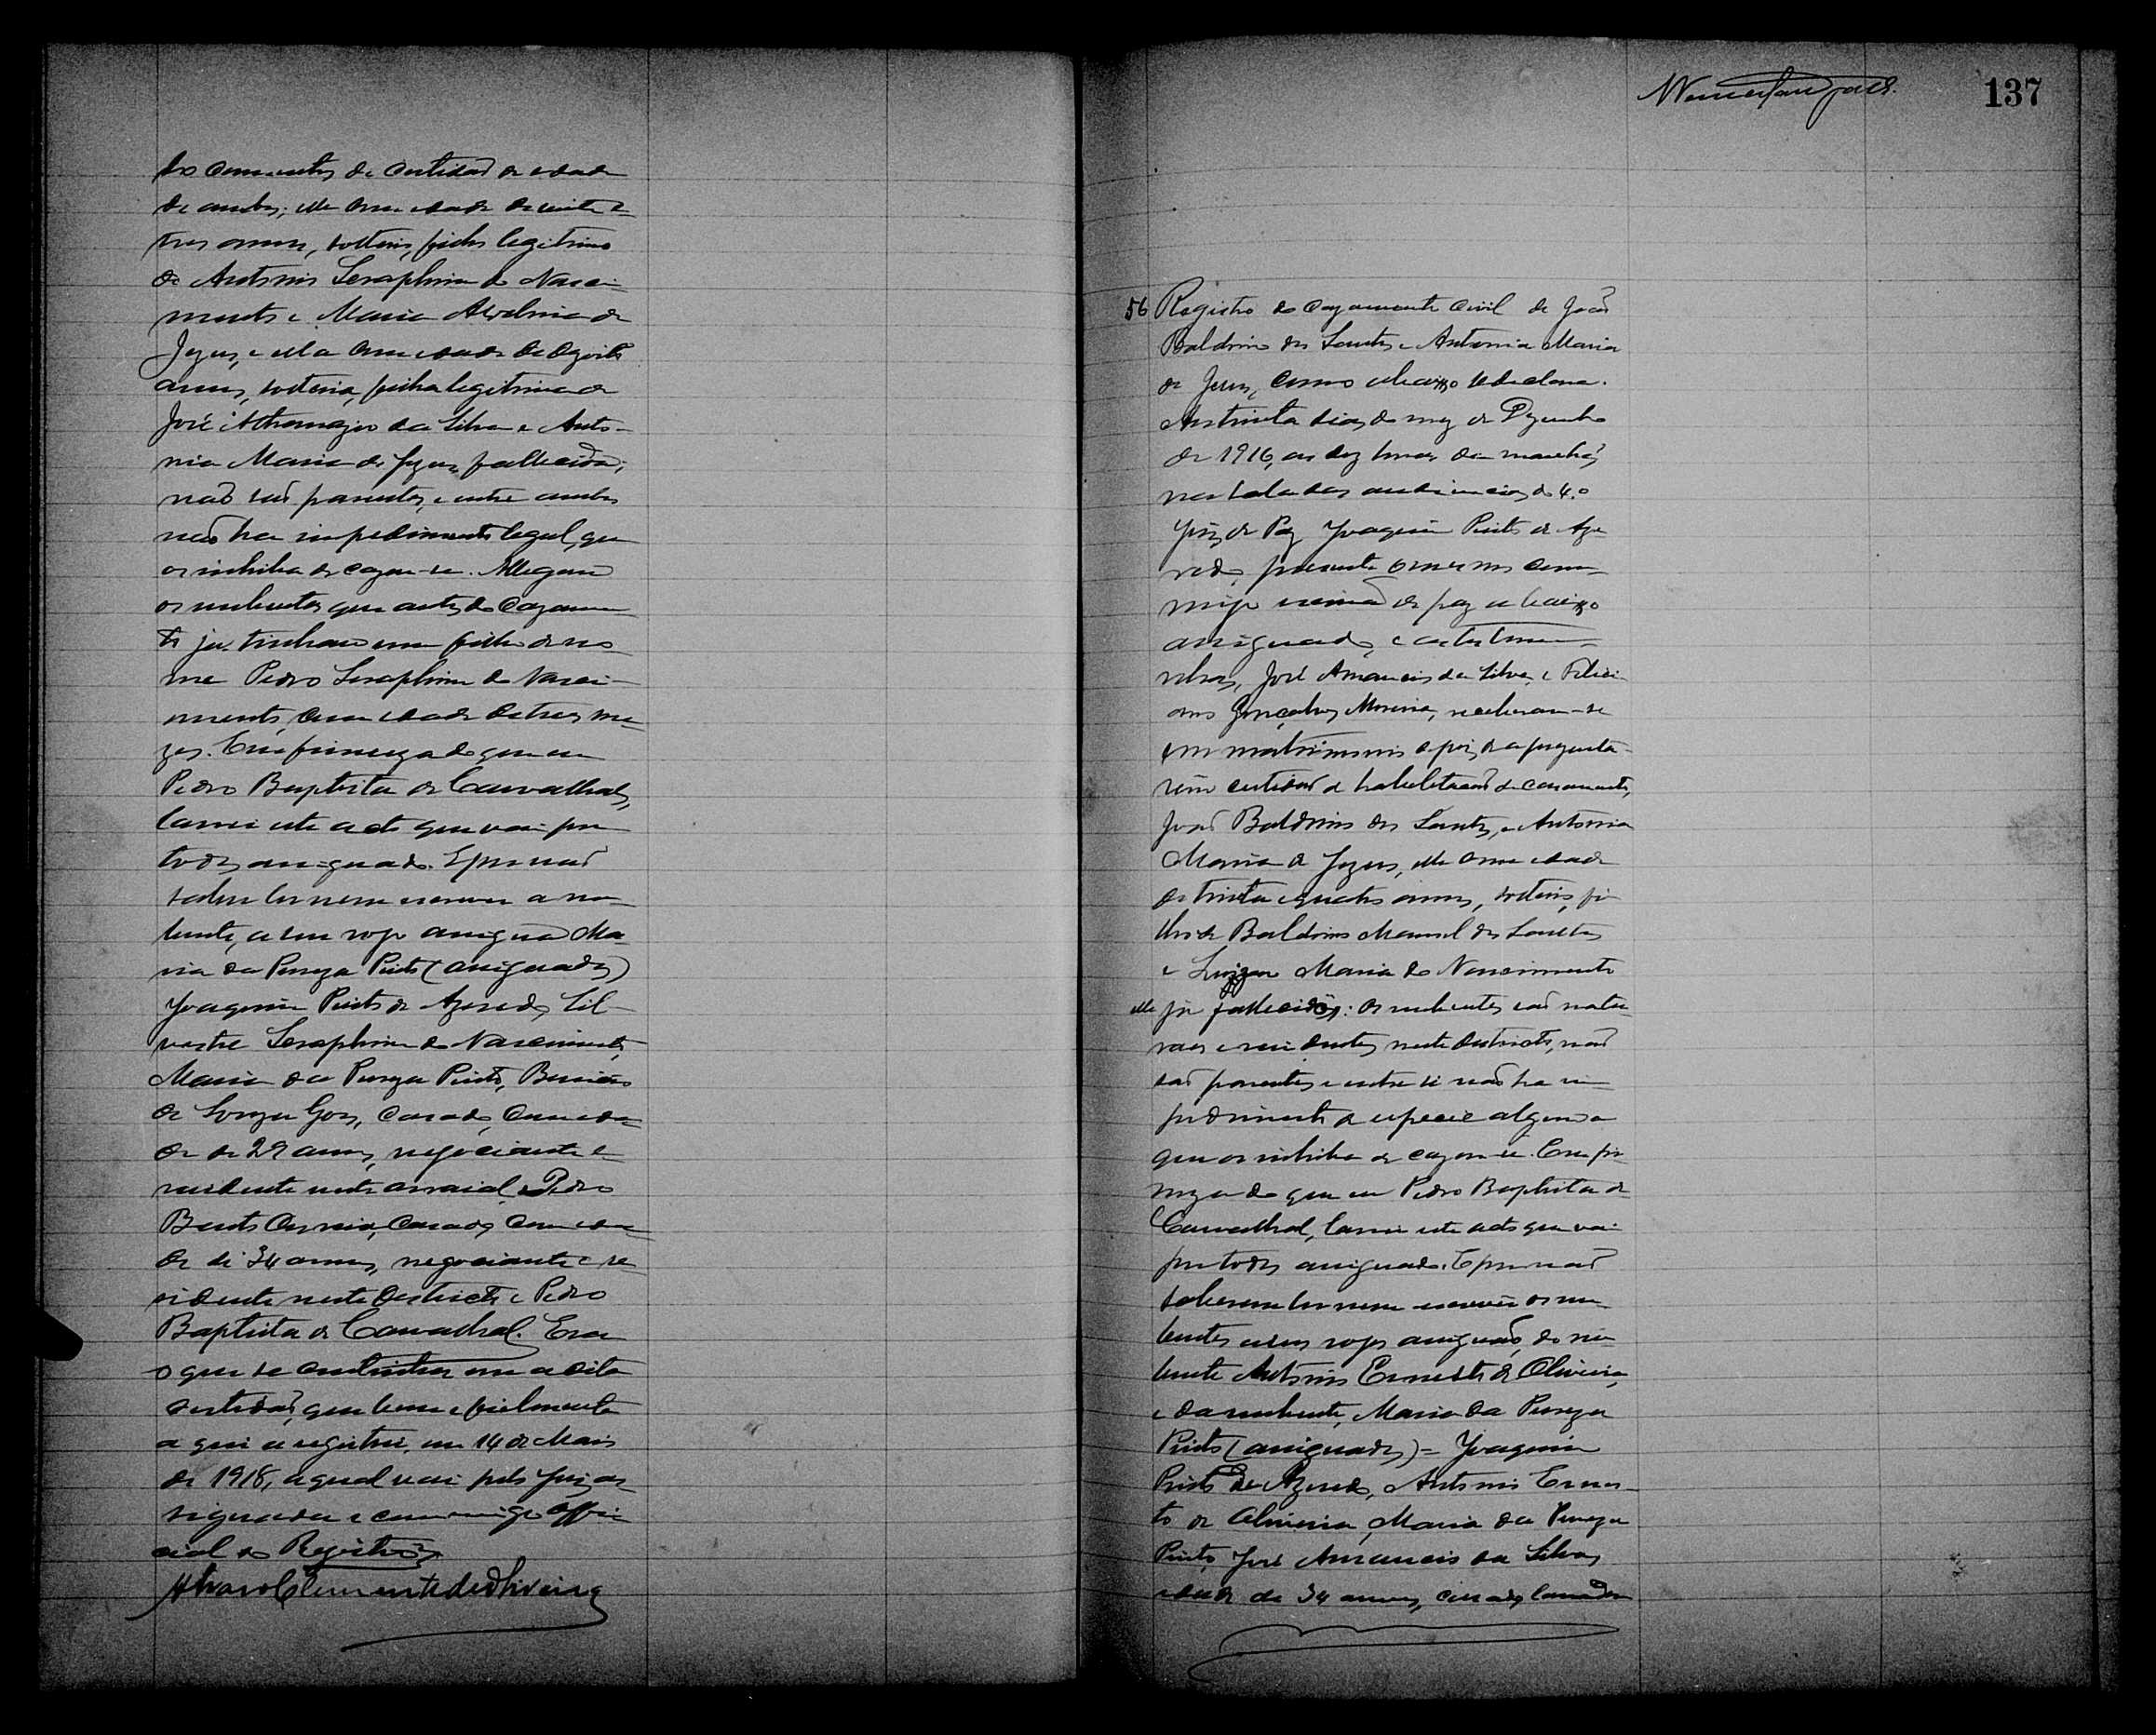 de ambos; elle com edade de vinte e
tres annos, solteiro, filho legitimo
de Antonio Seraphim do Nasci-
mento e Maria de
Jezus, e ella com edade de dezoito
annos, solteira, filha legitima de
José Athanazio da Silva e Anto-
nia Maria de Jezus, fallecida;
não são parentes, e entre ambos
não ha impedimento legal, que
os inhiba de cazar-se. Allegam
os nubentes que antes do cazamen
to ja tinham um filho de no
me Pedro Seraphim do Nasci-
mento, com edade de tres me
zes. Em firmeza do que eu
Pedro Baptista de Carvalhal,
lavrei este acto que vai por
todos assignado. E por não
saber ler nem escrever a nu-
bente, a seu rogo assigna Ma
ria da Pureza Pinto (assignados)
Joaquim Pinto de Azeredo, Sil-
vestre Seraphim do Nascimento,
Maria da Pureza Pinto,
de Souza Goes, casado, com eda
de de 29 annos, negociante e
residente neste arraial, e Pedro
Bento Correia, casado, com eda
de de 34 annos, negociante e re
sidente neste districto e Pedro
Baptista de Carvalhal. Era
o que se continha em a dita
certidão, que bem e fielmente
aqui a registrei, em 14 de Maio
de 1918, a qual vai pelo Juiz as
signada e commigo Offi
cial do Registro
Alvaro Clemente de Oliveira
137
56 Registro do cazamento civil de João
Baldoino dos Santos e Antonia Maria
de Jesus, como abaixo se declara.
Aos trinta dias do mez de Dezembro
de 1916, as dez horas da manhã,
na sala das audiencias do 4.o
Juiz de Paz Joaquim Pinto de Aze
redo, presente o mesmo com-
migo escrivão de paz abaixo
assignado, e as testemu-
nhas, José Amancio da Silva e Felici
ano Gonçalves Moreira, receberam-se
em matrimonio depois de aprezenta-
rem certidão de habelitação de casamento,
João Baldoino dos Santos, e Antonia
Maria de Jezus, elle com edade
de trinta e quatro annos, solteiro, fi
lho de Baldoino Manoel dos Santos
e Luiza Maria do Nascimento
elle já fallecido; os nubentes são natu
raes e residentes neste districto, não
são parentes e entre si não ha im
pedimento de especie alguma
que os inhiba de cazar-se. Em fir
meza do que eu Pedro Baptista de
Carvalhal, lavrei este acto que vai
por todos assignado. E por não
saberem ler nem escrever os nu
bentes a seu rogo assignão, do nu
bente Antonio Ernesto de Oliveira,
e da nubente, Maria da Pureza
Pinto (assignados) = Joaquim
Pinto de Azeredo, Antonio Ernes-
to de Oliveira, Maria da Pureza
Pinto, José Amancio da Silva,
edade de 34 annos, casado, lavrador